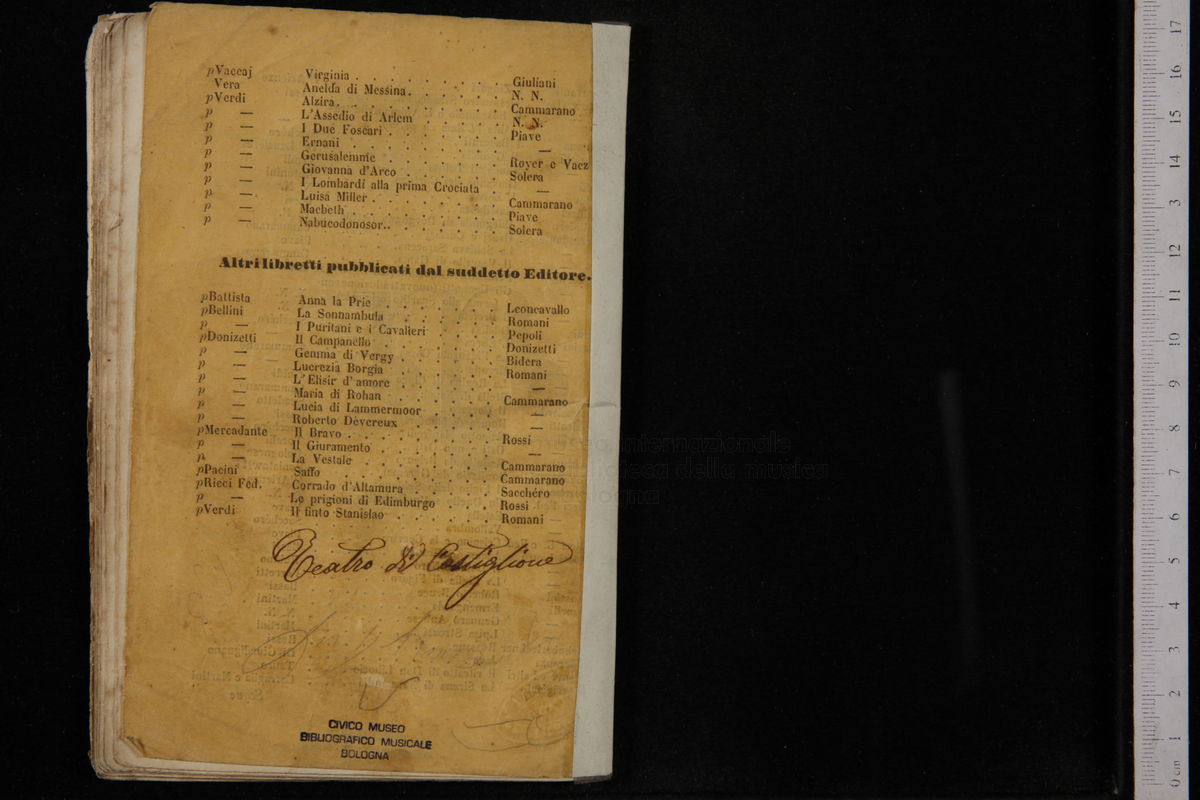 pVaccaj Virginia . . . . . . . . Giuliani
Vera Anelda di Messina. . . . . . N. N.
pVerdi Alzira. . . . . . . . . Cammarano
p — L'Assedio di Arlem . . . . . N. N.
p — I Due Foscari . . . . . . . Piave
p — Ernani . . . . . . . . —
p — Gerusalemme . . . . . . . Royer e Vaez
p — Giovanna d'Arco . . . . . . Solera
p — I Lombardi alla prima Crociata . . —
p — Luisa Miller . . . . . . . Cammarano
p — Macbeth . . . . . . . . Piave
p — Nabucodonosor.. . . . . . . Solera
Altri libretti pubblicati dal suddetto Editore.
pBattista Anna la Prie . . . . . . Leoncavallo
pBellini La Sonnambula . . . . . . Romani
p — I Puritani e i Cavalieri . . . . Pepoli
pDonizetti Il Campanello . . . . . . Donizetti
p — Gemma di Vergy . . . . . . Bidera
p — Lucrezia Borgia . . . . . . Romani
p — L'Elisir d'amore . . . . . . —
p — Maria di Rohan . . . . . . Cammarano
p — Lucia di Lammermoor . . . . . —
p — Roberto Devereux . . . . . . —
pMercadante Il Bravo . . . . . . . . Rossi
p — Il Giuramento . . . . . . . —
p — La Vestale . . . . . . . Cammarano
pPacini Saffo . . . . . . . . Cammarano
pRicci Fed. Corrado d'Altamura . . . . . Sacchéro
p — Le prigioni di Edimburgo . . . . Rossi
pVerdi Il finto Stanislao . . . . . . Romani
Teatro di Castiglione
CIVICO MUSEO
BIBLIOGRAFICO MUSICALE
BOLOGNA